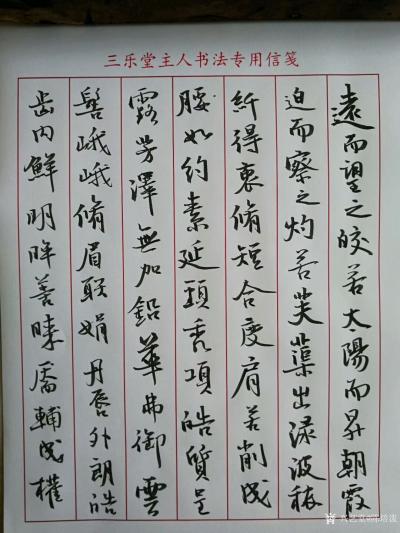 三乐堂主人书法专用信笺
遠而望之皎若太陽而昇朝霞
迫而察之灼若芙蕖出渌波秾
纤得衷脩短合度肩若削成
腰如约素延頸秀項皓質呈
露芳澤無加鉛華弗御雲
髻峨峨脩眉联娟丹唇外朗皓
齿内鮮明眸善睐靥輔成權